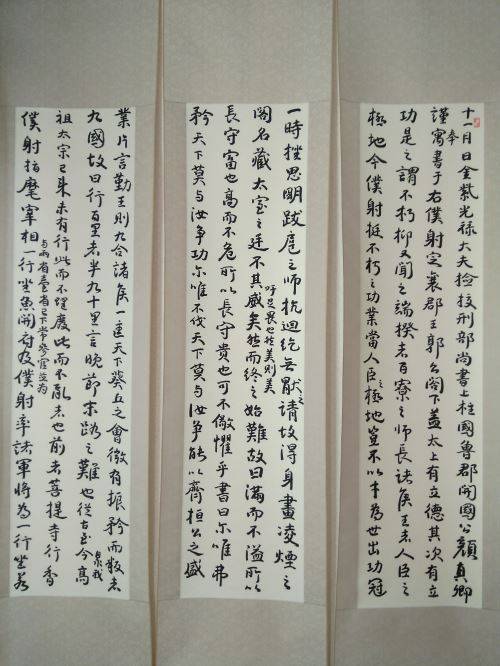 十一月日金紫光祿大夫撿挍刑部尚書上柱國魯郡開國公顏真卿
奉
謹寓書于右僕射定襄郡王郭公閤下蓋太上有立德其次有立
功是之謂不朽抑又聞之端揆者百寮之師長諸侯王者人臣之
極地今僕射挺不朽之功業當人臣之極地豈不以才為世出功冠
一時挫思明跋扈之師抗迴紇無厭之請故得身畫凌煙之
閣名藏太室之廷不其盛矣然而終之始難故曰滿而不溢所以
吁足畏也於美則美
長守富也高而不危所以長守貴也可不儆懼乎書曰尒唯弗
矜天下莫與汝爭功尒唯不伐天下莫與汝爭能以齊桓公之盛
業片言勤王則九合諸侯一匡天下葵丘之會微有振矜而叛者
九國故曰行百里者半九十里言晚節末路之難也從古至今泉我高
祖太宗已來未有行此而不理廢此而不亂者也前者菩提寺行香
与兩省臺省已下常參官並為
僕射指麾宰相一行坐魚開府及僕射率諸軍將為一行坐若